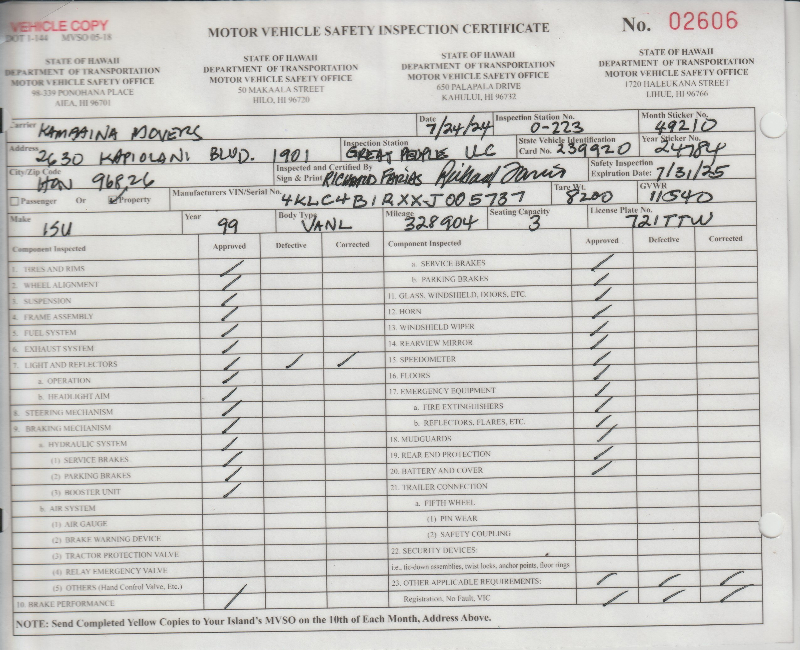 VEHICLE COPY
DOT 1-144 MVSO 05-18
MOTOR VEHICLE SAFETY INSPECTION CERTIFICATE
No. 02606
STATE OF HAWAII
DEPARTMENT OF TRANSPORTATION
MOTOR VEHICLE SAFETY OFFICE
98-339 PONOHANA PLACE
AIEA, HI 96701
STATE OF HAWAII
DEPARTMENT OF TRANSPORTATION
MOTOR VEHICLE SAFETY OFFICE
50 MAKAALA STREET
HILO, HI 96720
STATE OF HAWAII
DEPARTMENT OF TRANSPORTATION
MOTOR VEHICLE SAFETY OFFICE
650 PALAPALA DRIVE
KAHULUI, HI 96732
STATE OF HAWAII
DEPARTMENT OF TRANSPORTATION
MOTOR VEHICLE SAFETY OFFICE
1720 HALEUKANA STREET
LIHUE, HI 96766
Carrier KAMAAINA MOVERS
Date 7/24/24
Inspection Station No. 0-223
Month Sticker No. 49210
Address 2630 KAPIOLANI BLVD. 1901
Inspection Station GREAT PEOPLE LLC
State Vehicle Identification Card No. 239920
Year Sticker No. 24784
City/Zip Code HON 96826
Inspected and Certified By
Sign & Print RICHARD FARIAS Richard Farias
Safety Inspection
Expiration Date: 7/31/25
Passenger Or Property
Manufacturers VIN/Serial No. 4KLC4B1RXXJ005737
Tare Wt. 8200
GVWR 11540
Make ISU
Year 99
Body Type VANL
Mileage 328904
Seating Capacity 3
License Plate No. 721TTW
Component Inspected Approved Defective Corrected
1. TIRES AND RIMS
2. WHEEL ALIGNMENT
3. SUSPENSION
4. FRAME ASSEMBLY
5. FUEL SYSTEM
6. EXHAUST SYSTEM
7. LIGHT AND REFLECTORS
a. OPERATION
b. HEADLIGHT AIM
8. STEERING MECHANISM
9. BRAKING MECHANISM
a. HYDRAULIC SYSTEM
(1) SERVICE BRAKES
(2) PARKING BRAKES
(3) BOOSTER UNIT
b. AIR SYSTEM
(1) AIR GAUGE
(2) BRAKE WARNING DEVICE
(3) TRACTOR PROTECTION VALVE
(4) RELAY EMERGENCY VALVE
(5) OTHERS (Hand Control Valve, Etc.)
10. BRAKE PERFORMANCE
Component Inspected Approved Defective Corrected
a. SERVICE BRAKES
b. PARKING BRAKES
11. GLASS, WINDSHIELD, DOORS, ETC.
12. HORN
13. WINDSHIELD WIPER
14. REARVIEW MIRROR
15. SPEEDOMETER
16. FLOORS
17. EMERGENCY EQUIPMENT
a. FIRE EXTINGUISHERS
b. REFLECTORS, FLARES, ETC.
18. MUDGUARDS
19. REAR END PROTECTION
20. BATTERY AND COVER
21. TRAILER CONNECTION
a. FIFTH WHEEL
(1) PIN WEAR
(2) SAFETY COUPLING
22. SECURITY DEVICES:
i.e., tie-down assemblies, twist locks, anchor points, floor rings
23. OTHER APPLICABLE REQUIREMENTS:
Registration, No Fault, VIC
NOTE: Send Completed Yellow Copies to Your Island's MVSO on the 10th of Each Month, Address Above.